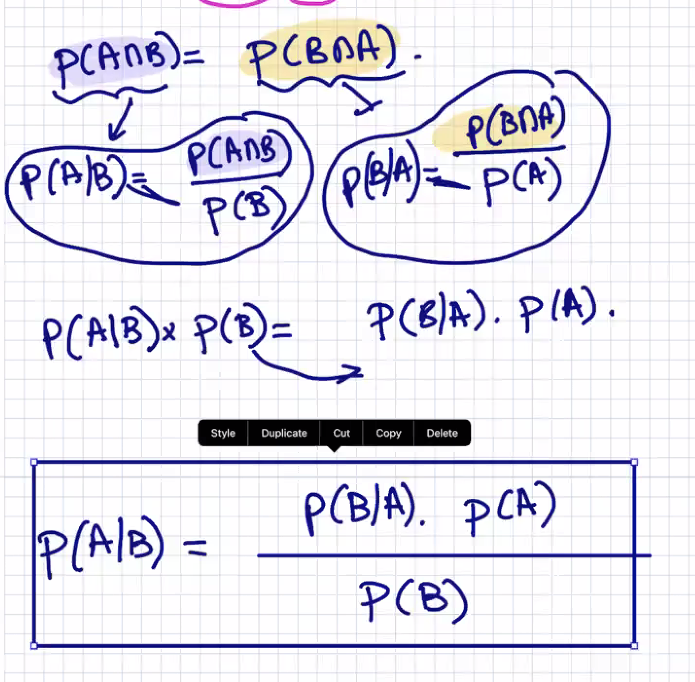 P(A∩B) = P(B∩A).
P(A|B) = P(A∩B) / P(B) P(B/A) = P(B∩A) / P(A)
P(A|B) x P(B) = P(B/A). P(A).
Style Duplicate Cut Copy Delete
P(A|B) = P(B/A). P(A) / P(B)